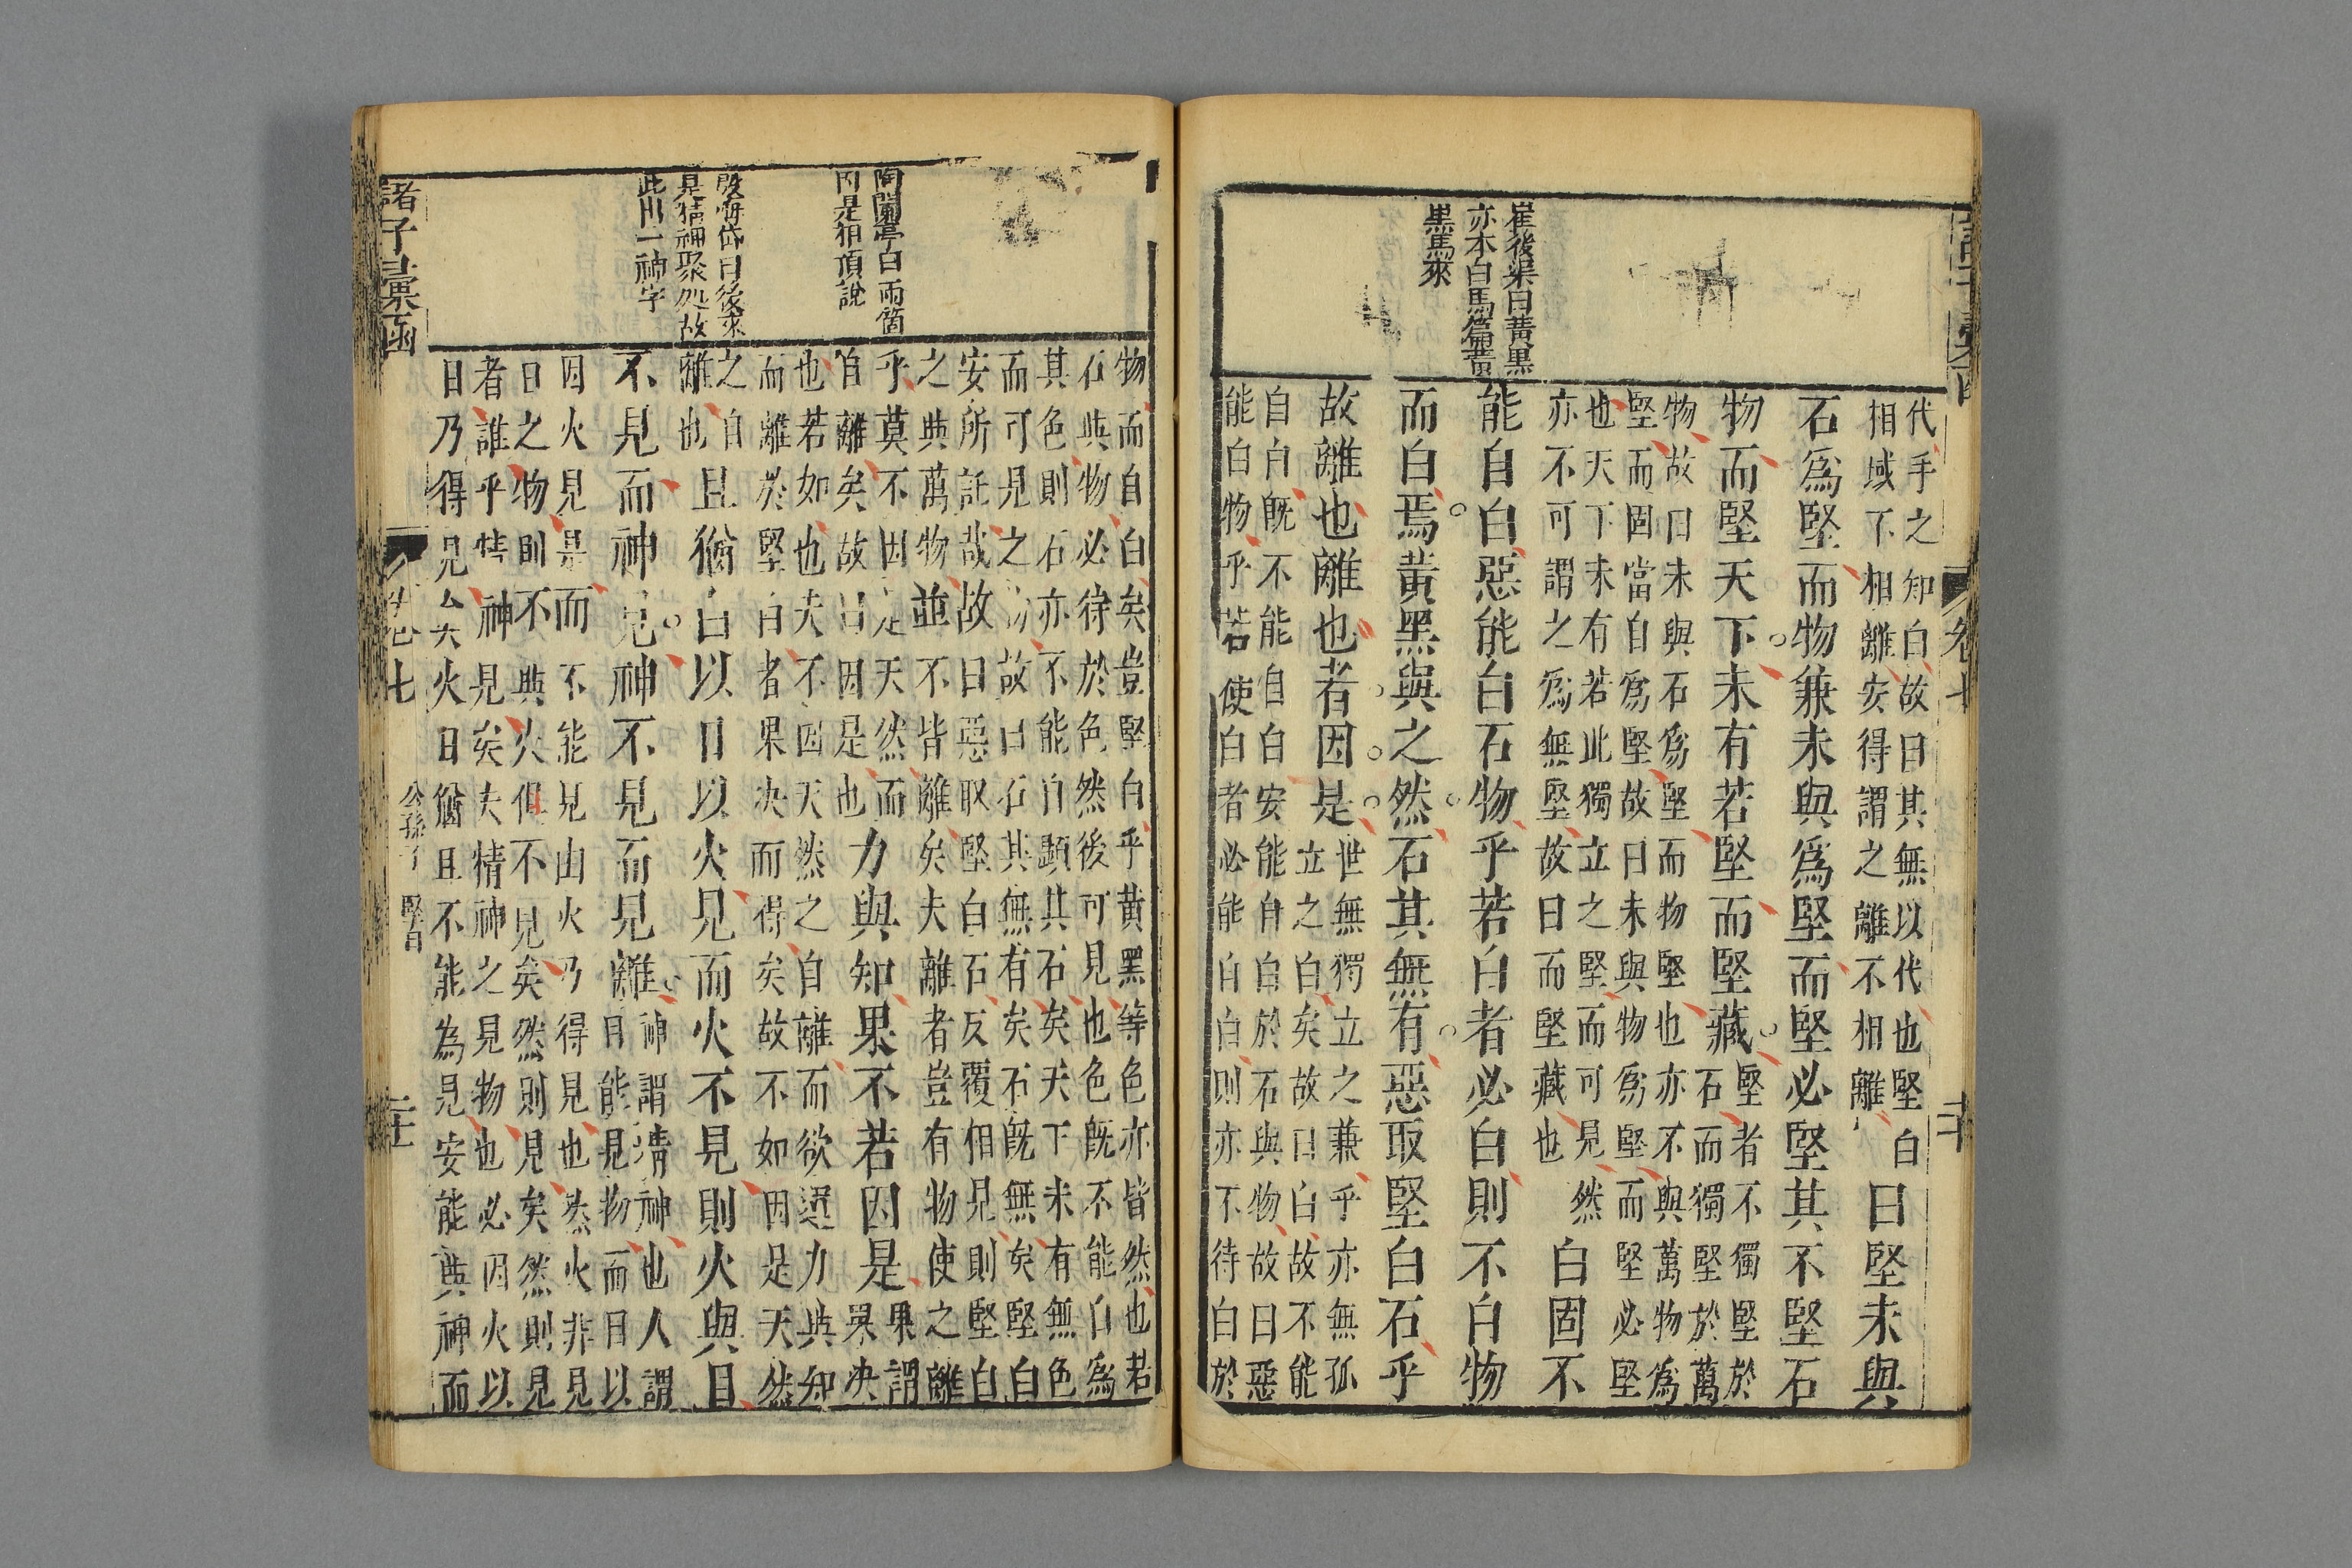 崔後渠曰黃黑
亦本白馬篇黃
黑馬來
代手之知白故曰其無以代也堅白
相域不相離安得謂之離不相離
曰堅未與
石爲堅而物兼未與爲堅而堅必堅其不堅石
物而堅天下未有若堅而堅藏
堅者不獨堅於
石而獨堅於萬
物故曰未與石爲堅而物堅也亦不與萬物爲
堅而固當自爲堅故曰未與物爲堅而堅必堅
也天下未有若此獨立之堅而可見然
亦不可謂之爲無堅故曰而堅藏也
白固不
能自白惡能白石物乎若白者必白則不白物
而白焉黃黑與之然石其無有惡取堅白石乎
故離也離也者因是
世無獨立之兼乎亦無孤
立之白矣故曰白故不能
自白旣不能自白安能自白於石與物故曰惡
能白物乎若使白者必能自白則亦不待白於
卷七
二十
陶蘭亭曰兩箇
因是相頂說
殷海岱曰後求
是精神聚処故
此出一神字
物而自白矣豈堅白乎黃黑等色亦皆然也若
石與物必待於色然後可見也色旣不能白爲
其色則石亦不能自顯其石矣天下未有無色
而可見之物故曰石其無有矣石旣無矣堅白
安所託哉故曰惡取堅白石反覆相見則堅白
之與萬物並不皆離矣夫離者豈有物使之離
乎莫不因是天然而
自離矣故曰因是也
力與知果不若因是
果謂
果決
也若如也夫不因天然之自離而欲逞力與知
而離於堅白者果決而得矣故不如因是天然
之自
離也
且猶白以目以火見而火不見則火與目
不見而神見神不見而見離
神謂精神也人謂
目能見物而目以
因火見是而不能見由火乃得見也然火非見
日之物則不與火俱不見矣然則見矣然則見
者誰乎精神見矣夫精神之見物也必因火以
目乃得見矣火目猶且不能為見安能與神而
諸子彙函
卷七
公孫子 堅白
二十一